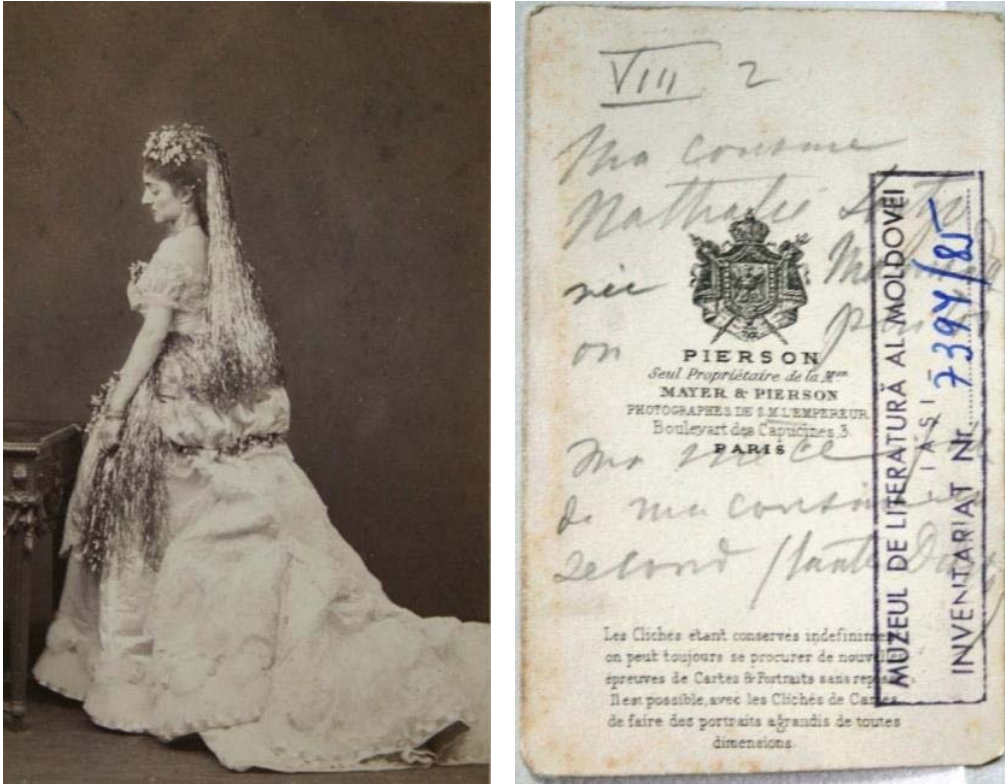 VIII 2
Ma cousine
Nathalie
née
on
PIERSON
Seul Propriétaire de la Mon
MAYER & PIERSON
PHOTOGRAPHES DE S.M.L'EMPEREUR
Boulevart des Capucines, 3.
PARIS
Ma nièce
de ma cousine
second
Les Clichés étant conservés indéfiniment
on peut toujours se procurer de nouvelles
épreuves de Cartes & Portraits sans repose
Il est possible, avec les Clichés de Cartes,
de faire des portraits agrandis de toutes
dimensions.
MUZEUL DE LITERATURĂ AL MOLDOVEI
- IAȘI -
INVENTARIAT Nr. 7394/85